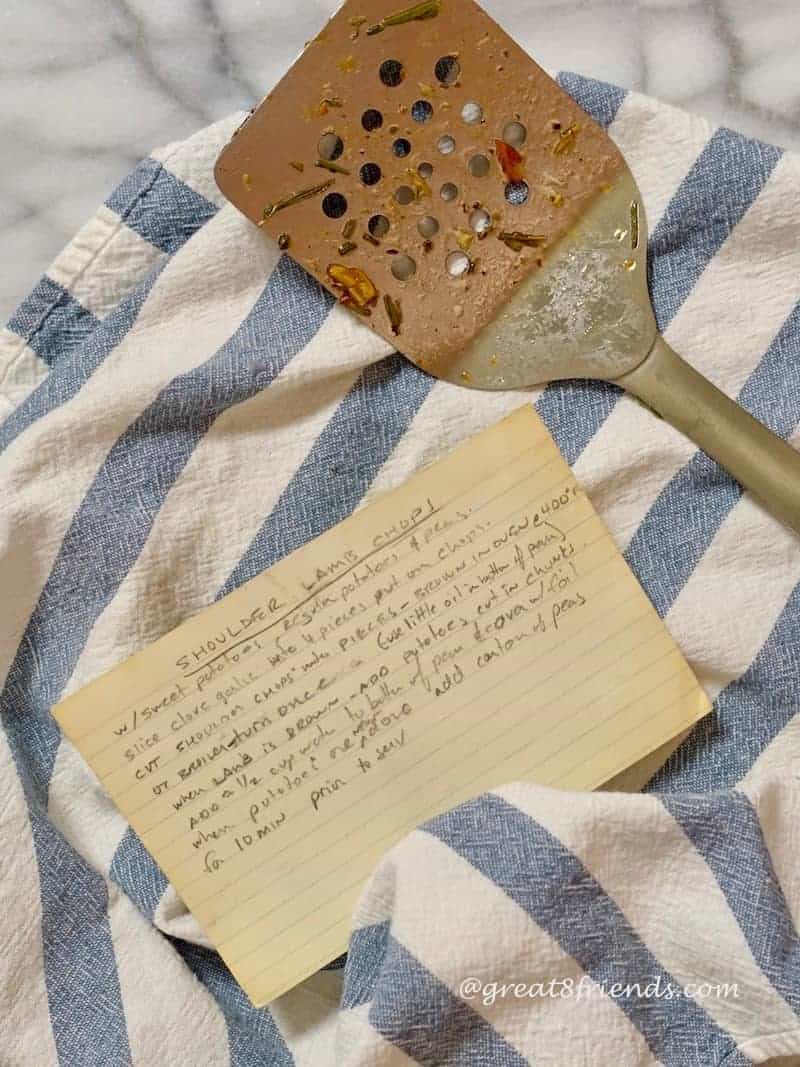 SHOULDER LAMB CHOPS
w/sweet potatoes / regular potatoes & peas.
slice clove garlic into 4 pieces put on chops.
CUT SHOULDER CHOPS into PIECES - BROWN IN OVEN @ 400°
or BROILER - TURN ONCE - (use little oil in bottom of pan)
when LAMB IS BROWN - ADD POTATOES cut in chunks.
ADD a 1/2 cup water to bottom of pan & cover w/ foil
when potatoes are near done add carton of peas
for 10 MIN prior to serv
@great8friends.com